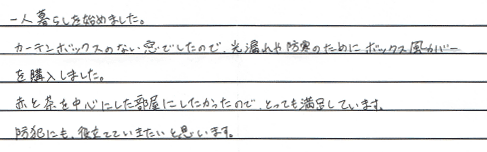 一人暮らしを始めました。
カーテンボックスのない窓でしたので、光漏れや防寒のためにボックス風カバー
を購入しました。
赤と茶を中心にした部屋にしたかったので、とっても満足しています。
防犯にも、役立てていきたいと思います。